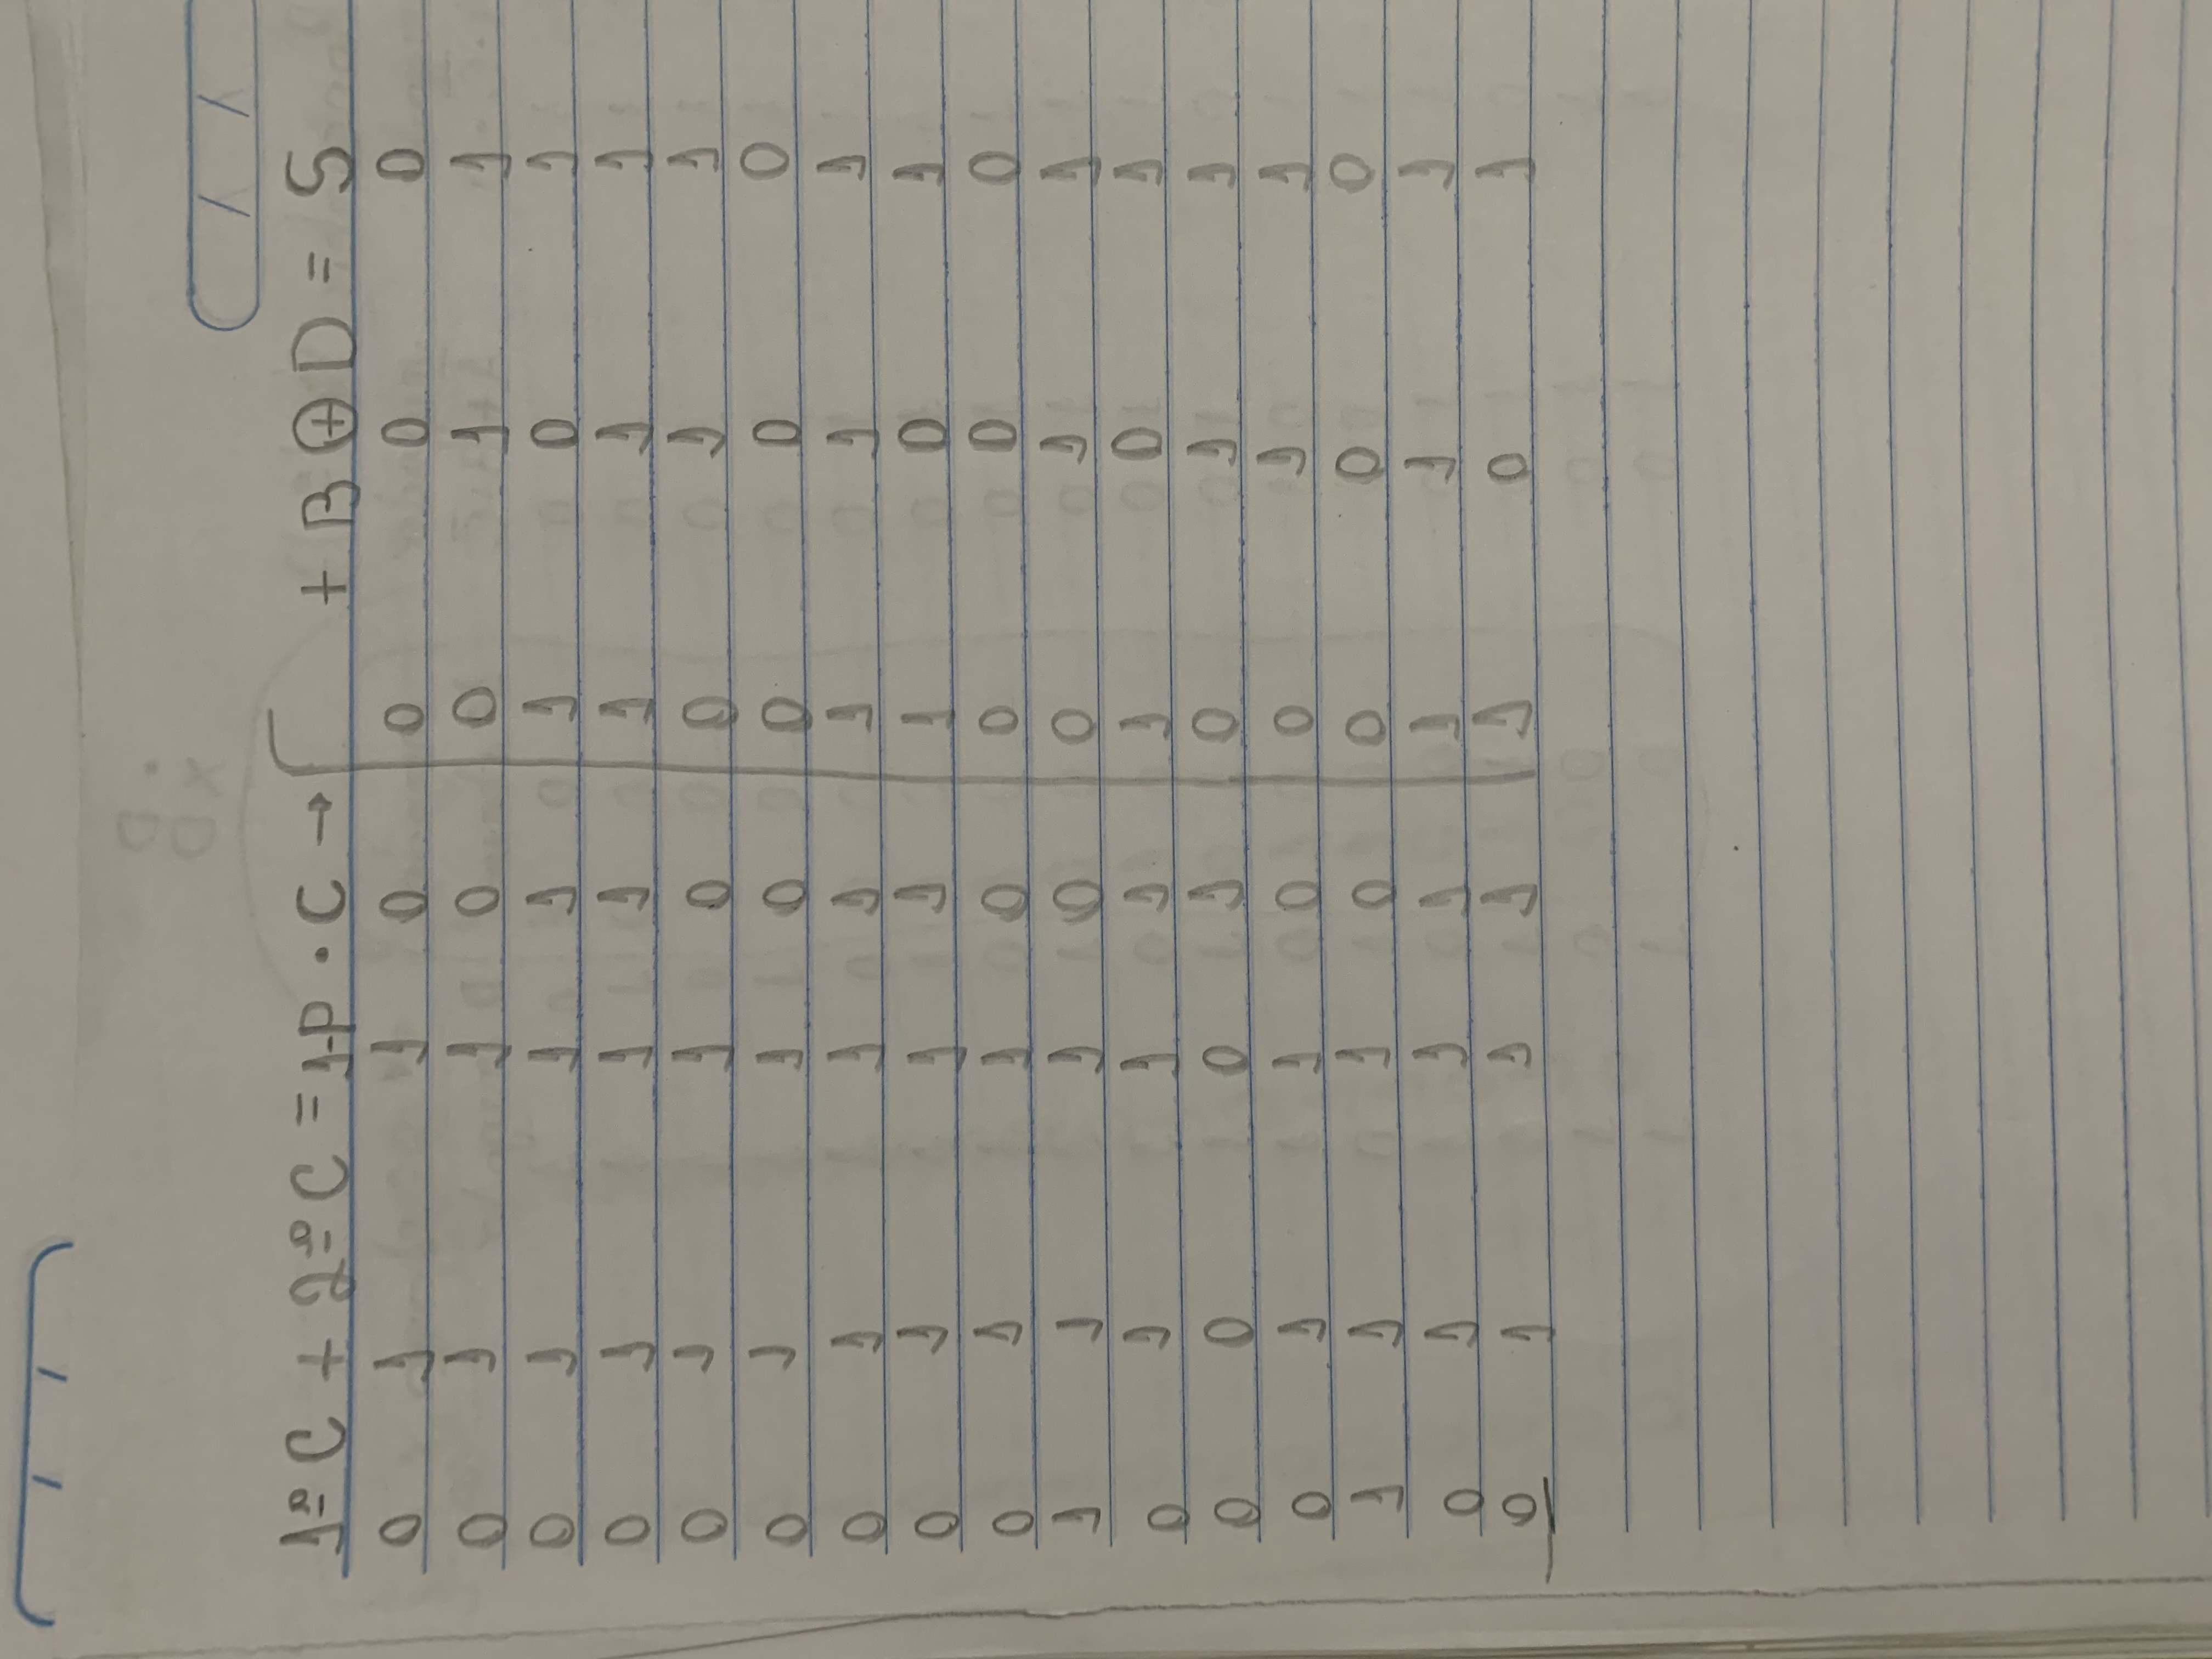 1ª C + 2ª C = 1-P • C → + B ⊕ D = S
0 1 1 0 0 0 0
0 1 1 0 0 1 1
0 1 1 1 1 0 1
0 1 1 1 1 1 1
0 1 1 0 0 1 1
0 1 1 0 0 0 0
0 1 1 1 1 1 1
0 1 1 1 1 0 1
0 1 1 0 0 0 0
1 1 1 0 0 1 1
0 1 1 1 1 0 1
0 0 0 1 0 1 1
0 1 1 0 0 1 1
1 1 1 0 0 0 0
0 1 1 1 1 1 1
0 1 1 1 1 0 1